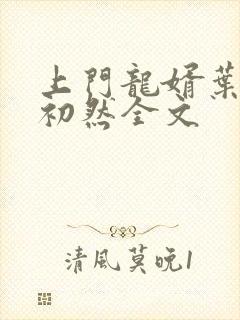 上門龍婿葉
初然全文
清風莫晚1